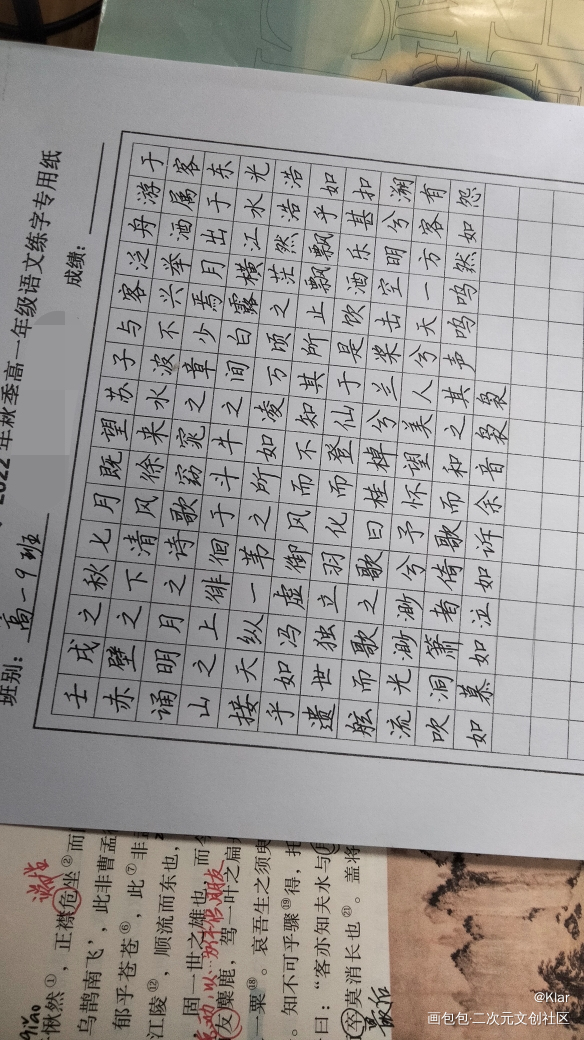 2022年秋季高一年级语文练字专用纸
班别：高一9班 成绩：
壬戌之秋七月既望苏子与客泛舟游于
赤壁之下清风徐来水波不兴举酒属客
诵明月之诗歌窈窕之章少焉月出于东
山之上徘徊于斗牛之间白露横江水光
接天纵一苇之所如凌万顷之茫然浩浩
乎如冯虚御风而不知其所止飘飘乎如
遗世独立羽化而登仙于是饮酒乐甚扣
舷而歌之歌曰桂棹兮兰桨击空明兮溯
流光渺渺兮予怀望美人兮天一方客有
吹洞箫者倚歌而和之其声呜呜然如怨
如慕如泣如诉余音袅袅
qiǎo
愀然①，正襟危坐②而
乌鹊南飞’，此非曹孟
郁乎苍苍⑥，此⑦非
江陵⑫，顺流而东也，
固一世之雄也，而
友麋鹿，驾一叶之扁
一粟⑱。哀吾生之须臾
。知不可乎骤⑲得，托
曰：“客亦知夫水与
卒莫消长也㉑。盖将
最后
@Klar
画包包·二次元文创社区